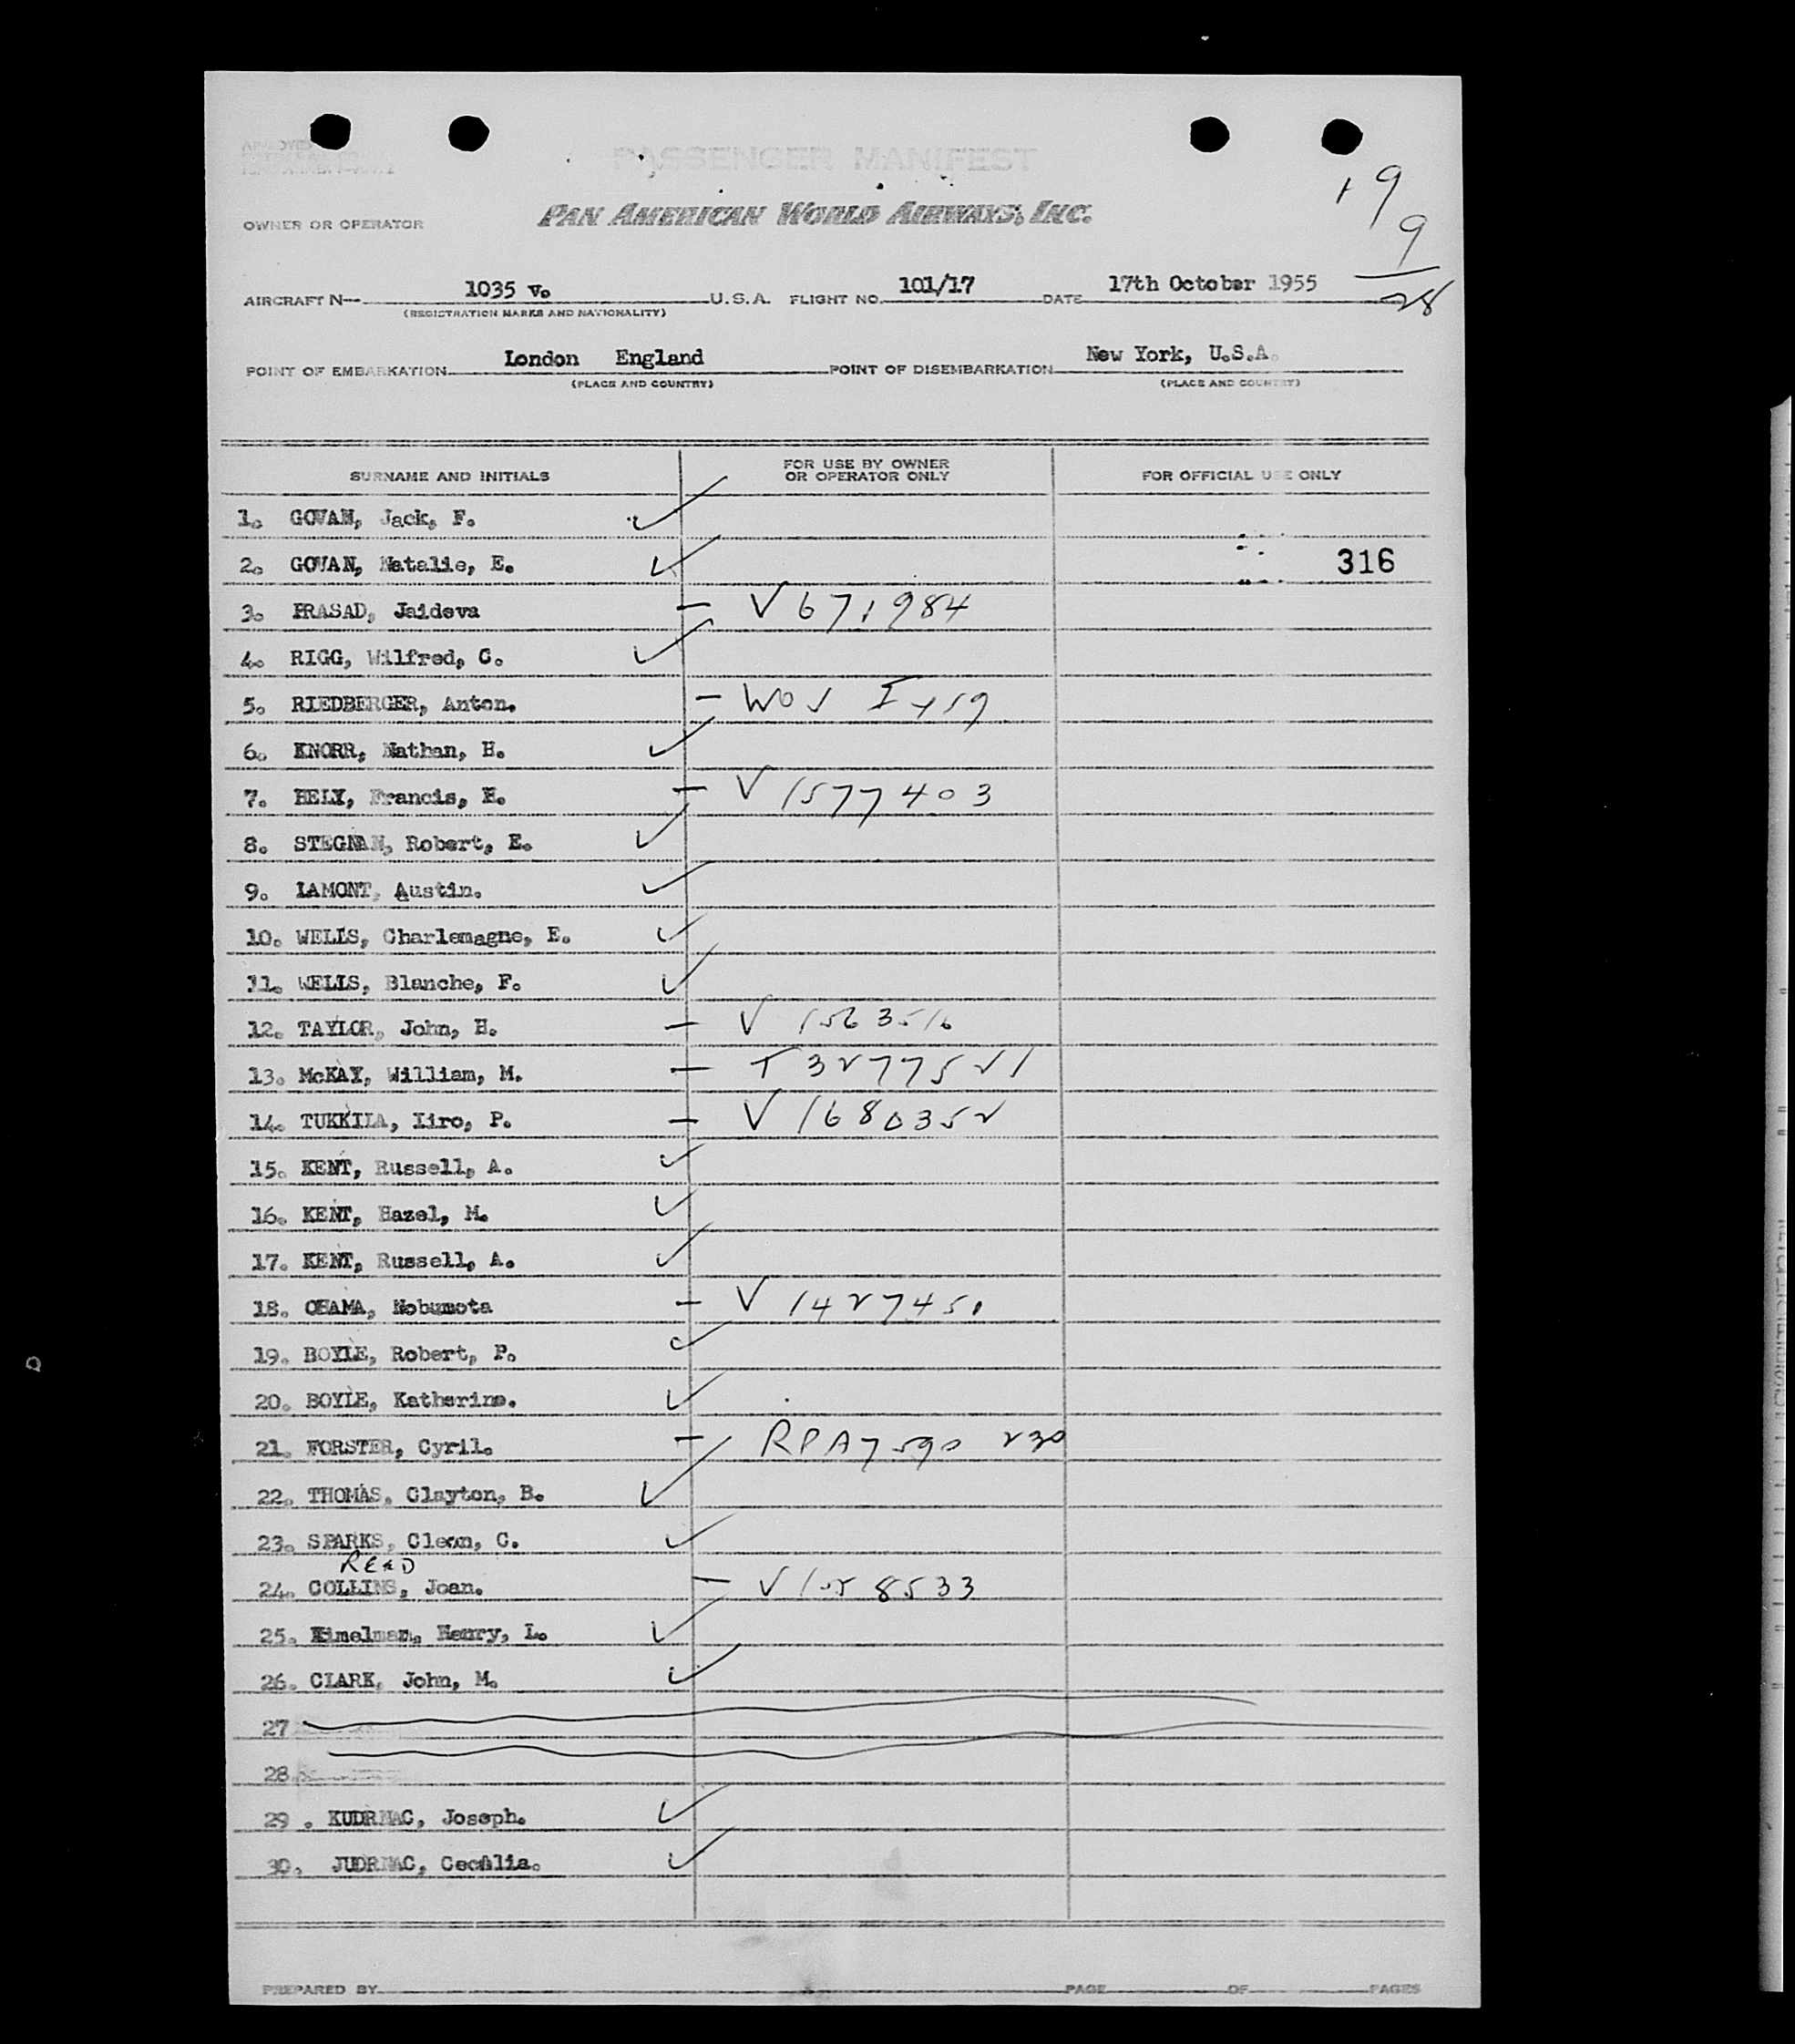 PASSENGER MANIFEST
19
OWNER OR OPERATOR PAN AMERICAN WORLD AIRWAYS, INC.
9
AIRCRAFT N 1035 V. U.S.A. FLIGHT NO. 101/17 DATE 17th October 1955
28
(REGISTRATION MARKS AND NATIONALITY)
POINT OF EMBARKATION London England POINT OF DISEMBARKATION New York, U.S.A.
(PLACE AND COUNTRY) (PLACE AND COUNTRY)
SURNAME AND INITIALS FOR USE BY OWNER OR OPERATOR ONLY FOR OFFICIAL USE ONLY
1. GOVAN, Jack, F.
2. GOVAN, Natalie, E. 316
3. PRASAD, Jaideva — V671984
4. RIGG, Wilfred, C.
5. RIEDBERGER, Anton. —
6. KNORR, Nathan, H.
7. HELY, Francis, H. — V 1577403
8. STEGMAN, Robert, E.
9. LAMONT, Austin.
10. WELLS, Charlemagne, E.
11. WELLS, Blanche, F.
12. TAYLOR, John, H. — V 1563516
13. McKAY, William, M. — T 3277521
14. TUKKILA, Iiro, P. — V 1680352
15. KENT, Russell, A.
16. KENT, Hazel, M.
17. KENT, Russell, A.
18. OHAMA, Nobumota — V 1427451
19. BOYLE, Robert, P.
20. BOYLE, Katherine.
21. FORSTER, Cyril. — RPA7590 230
22. THOMAS, Clayton, B.
23. SPARKS, Cleon, C.
READ
24. COLLINS, Joan. —
25. Kimelman, Henry, L.
26. CLARK, John, M.
27
28.
29 . KUDRNAC, Joseph.
30. JUDRNAC, Cecilia.
PREPARED BY PAGE OF PAGES